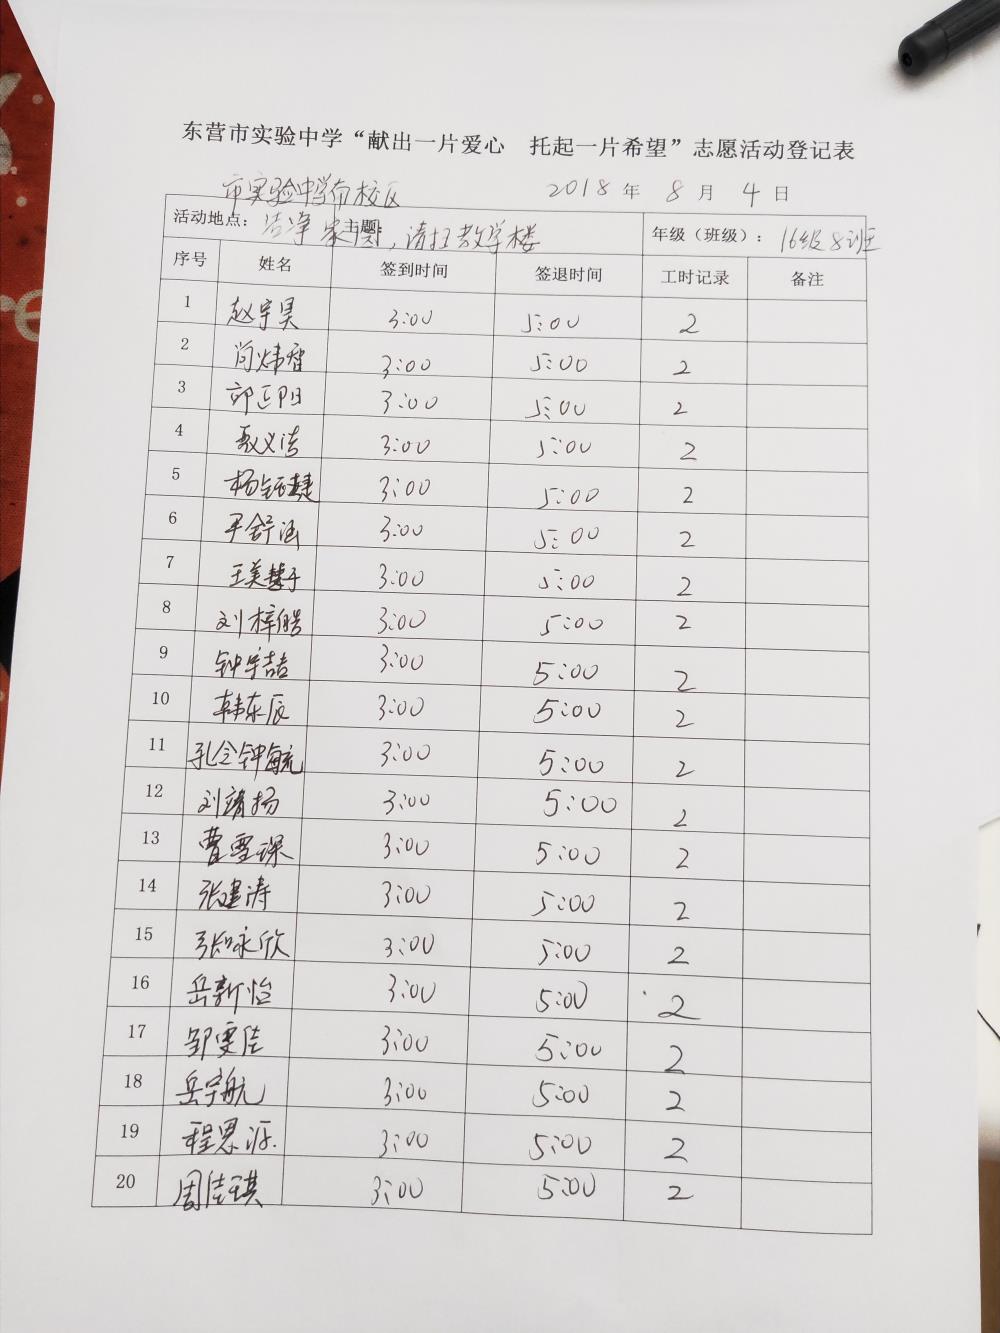 东营市实验中学“献出一片爱心 托起一片希望”志愿活动登记表
市实验中学南校区 2018 年 8 月 4 日
活动地点： 主题： 洁净家园，清扫教学楼 年级（班级）： 16级8班
序号 姓名 签到时间 签退时间 工时记录 备注
1 赵宇昊 3:00 5:00 2
2 尚炜智 3:00 5:00 2
3 郭正阳 3:00 5:00 2
4 聂义洁 3:00 5:00 2
5 杨钰捷 3:00 5:00 2
6 尹舒涵 3:00 5:00 2
7 王美慧子 3:00 5:00 2
8 刘梓皓 3:00 5:00 2
9 钟宇喆 3:00 5:00 2
10 韩东辰 3:00 5:00 2
11 孔令钟毓 3:00 5:00 2
12 刘靖扬 3:00 5:00 2
13 曹雪琛 3:00 5:00 2
14 张建涛 3:00 5:00 2
15 张咏欣 3:00 5:00 2
16 岳新怡 3:00 5:00 2
17 邹雯佳 3:00 5:00 2
18 岳宇航 3:00 5:00 2
19 程思源 3:00 5:00 2
20 周佳琪 3:00 5:00 2